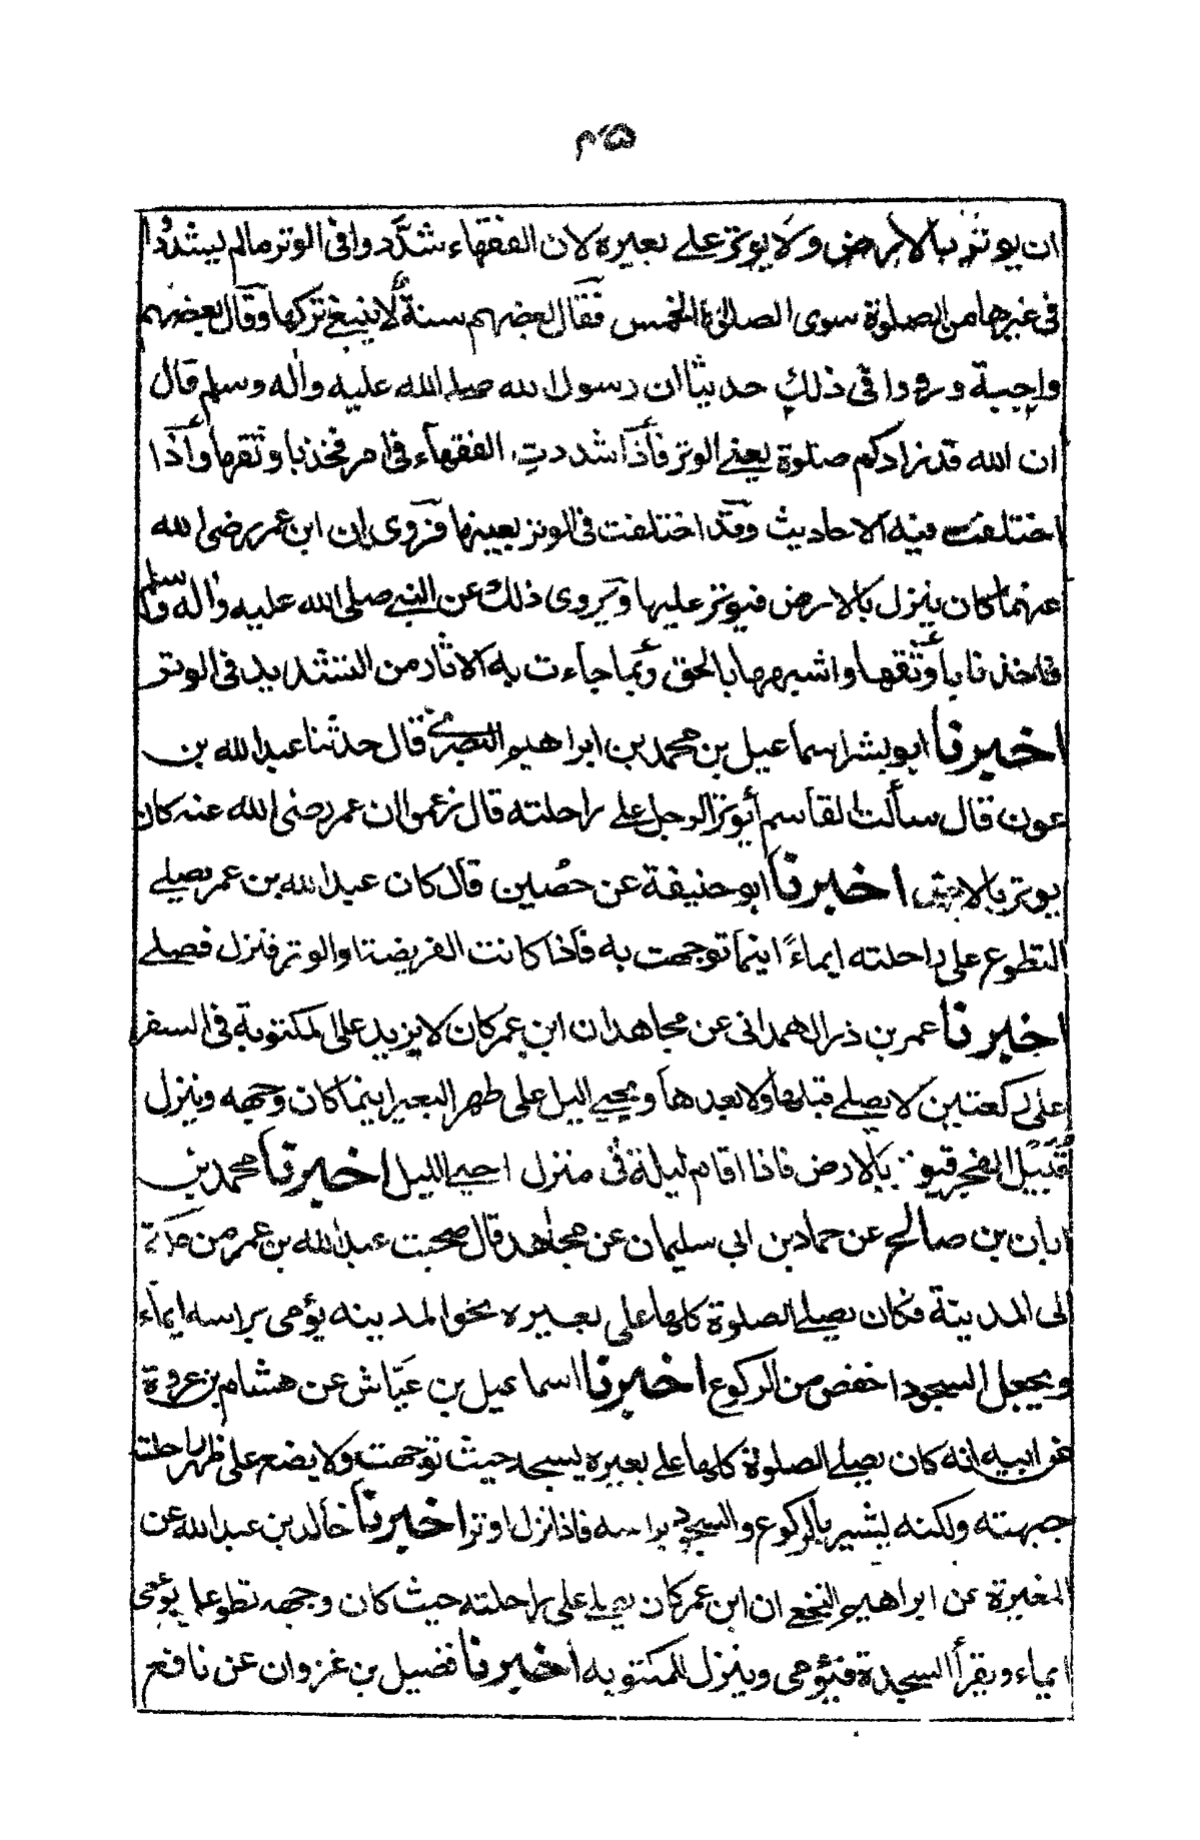 ٤٥
ان يوتر بالارض ولا يوتر على بعيره لان الفقهاء شدّدوا فى الوتر ما لم يشددوا
فى غيرها من الصلوة سوى الصلوة الخمس فقال بعضهم سنة لا ينبغى تركها وقال بعضهم
واجبة ورووا فى ذلك حديثا ان رسول الله صلى الله عليه واٰله وسلم قال
ان الله قد زادكم صلوة يعنى الوتر فأذا شددت الفقهاء فى امر فخذ باوثقها وأذا
اختلفت فيه الاحاديث وقد اختلفت فى الوتر بعينها فروى ان ابن عمر رضى الله
عنهما كان ينزل بالارض فيوتر عليها ويروى ذلك عن النبى صلى الله عليه واٰله وسلم
فاخذنا باوثقها واشبهها بالحق وبما جاءت به الاٰثار من التشديد فى الوتر
اخبرنا ابو بشر اسماعيل بن محمد بن ابراهيم البصرى قال حدثنا عبد الله بن
عون قال سألت القاسم أيوتر الرجل على راحلته قال زعموا ان عمر رضى الله عنه كان
يوتر بالارض اخبرنا ابو حنيفة عن حصين قال كان عبد الله بن عمر يصلى
التطوع على راحلته ايماءً اينما توجهت به فأذا كانت الفريضة او الوتر فنزل فصلى
اخبرنا عمر بن ذر الهمدانى عن مجاهد ان ابن عمر كان لا يزيد على المكتوبة فى السفر
على ركعتين لا يصلى قبلها ولا بعدها ويحيى اليل على ظهر البعير اينما كان وجهه وينزل
قُبَيْل الفجر فيوتر بالارض فاذا اقام ليلة فى منزل احيى الليل اخبرنا محمد بن
ابان بن صالح عن حماد بن ابى سليمان عن مجاهد قال صحبت عبد الله بن عمر من مكة
الى المدينة فكان يصلى الصلوة كلها على بعيره نحو المدينه يؤمى براسه ايماء
ويجعل السجود اخفض من الركوع اخبرنا اسماعيل بن عيّاش عن هشام بن عروة
عن ابيه انه كان يصلى الصلوة كلها على بعيره يسجد حيث توجهت ولا يضع على ظهر راحلته
جبهته ولكنه يشير بالركوع والسجود براسه فاذا نزل اوتر اخبرنا خالد بن عبد الله عن
المغيرة عن ابراهيم النخعى ان ابن عمر كان يصلى على راحلته حيث كان وجهه تطوعا يؤمى
ايماء ويقرأ السجدة فيؤمى وينزل للمكتوبه اخبرنا فضيل بن غزوان عن نافع